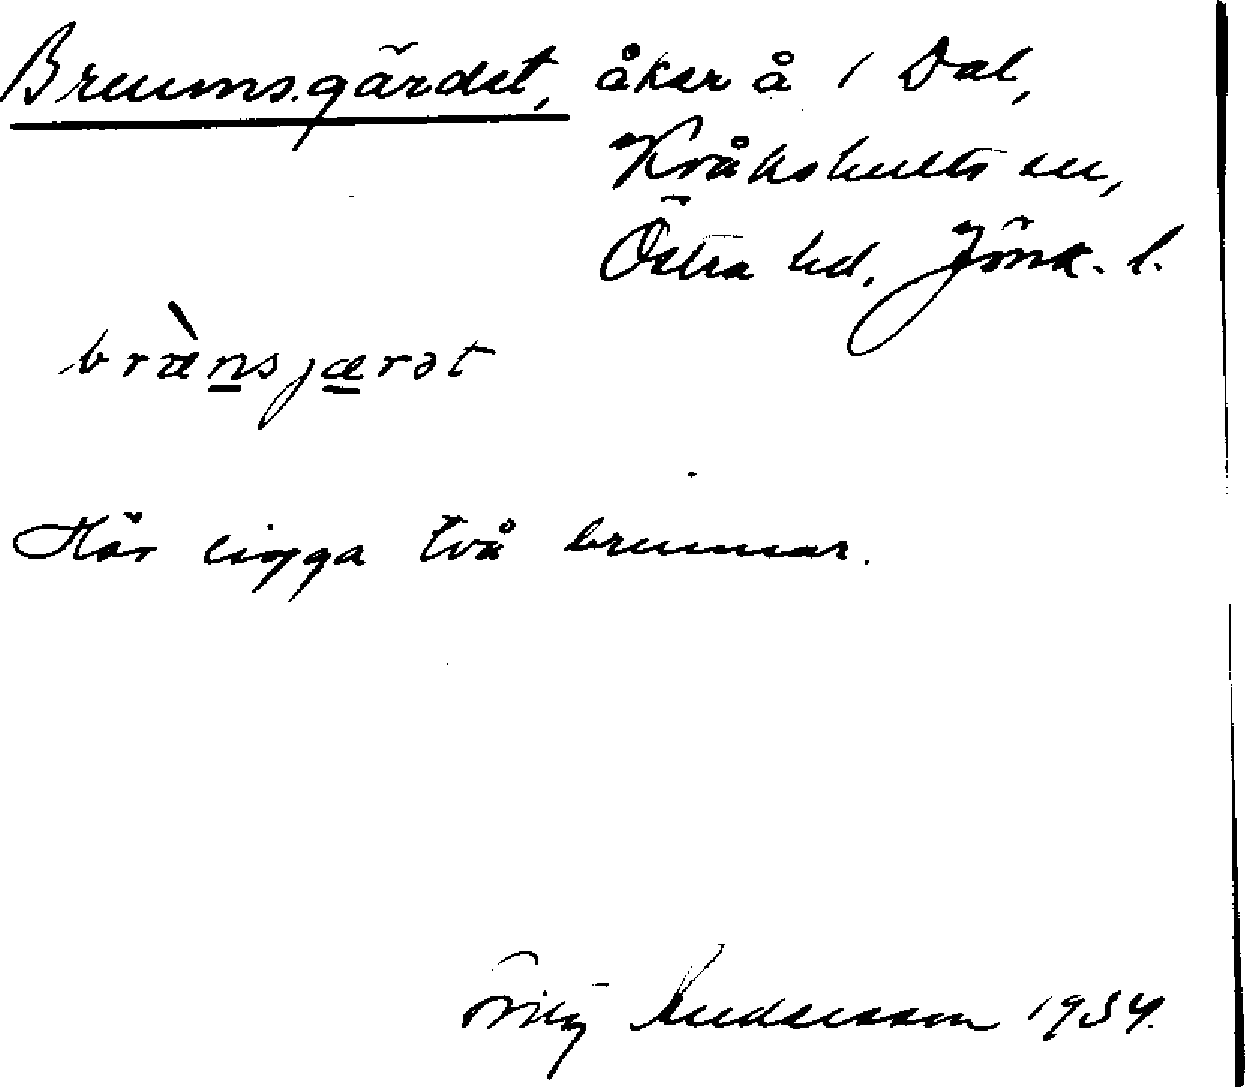 Brunnsgärdet, åker å 1 Dal,
Kråkshults sn,
Östra hd, Jönk. l.
brænsjærət
Här ligga två brunnar.
Andersson 1934.